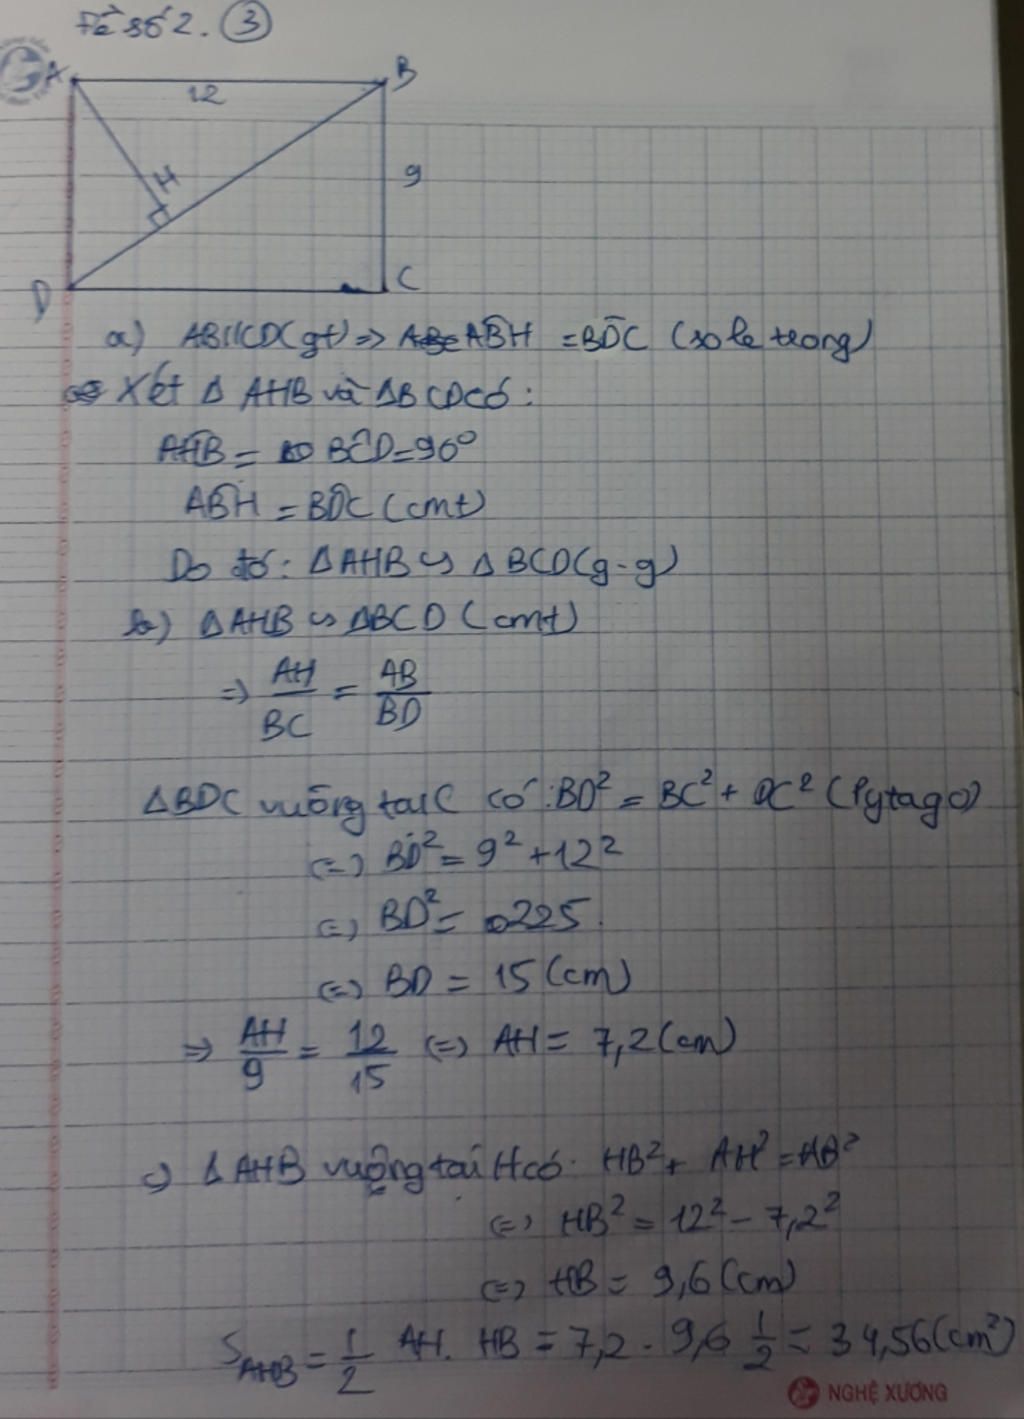 Đề số 2. ③
A B
12
H
9
D C
a) AB//CD(gt) => ABH = BDC (so le trong)
Xét Δ AHB và ΔBCD có:
AHB = BCD = 90°
ABH = BDC (cmt)
Do đó: ΔAHB ∽ ΔBCD(g-g)
b) ΔAHB ∽ ΔBCD (cmt)
=> AH/BC = AB/BD
ΔBDC vuông tại C có: BD² = BC² + DC² (Pytago)
(=) BD² = 9² + 12²
(=) BD² = 225.
(=) BD = 15 (cm)
=> AH/9 = 12/15 (=) AH = 7,2 (cm)
c) Δ AHB vuông tại H có: HB² + AH² = AB²
(=) HB² = 12² - 7,2²
(=) HB = 9,6 (cm)
S AHB = 1/2 AH. HB = 7,2 . 9,6 1/2 = 34,56 (cm²)
NGHỆ XƯƠNG